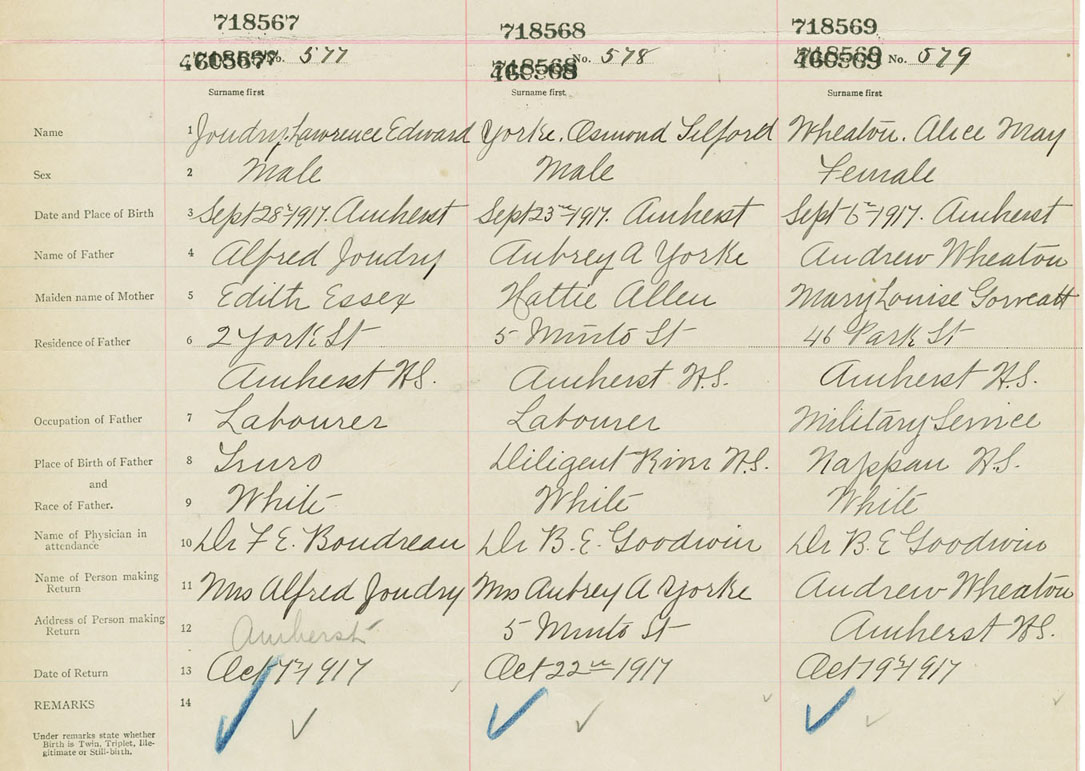 718567 718568 718569
No. 577 No. 578 No. 579
Surname first Surname first Surname first
Name 1 Joudry, Lawrence Edward Yorke, Osmond Silford Wheaton, Alice May
Sex 2 Male Male Female
Date and Place of Birth 3 Sept 28th 1917. Amherst Sept 23rd 1917. Amherst Sept 6th 1917. Amherst
Name of Father 4 Alfred Joudry Aubrey A Yorke Andrew Wheaton
Maiden name of Mother 5 Edith Essex Hattie Allen Mary Louise
Residence of Father 6 2 York St 5 Minto St 46 Park St
Amherst N.S. Amherst N.S. Amherst N.S.
Occupation of Father 7 Labourer Labourer Military Service
Place of Birth of Father 8 Truro Diligent River N.S. Nappan N.S.
and
Race of Father. 9 White White White
Name of Physician in
attendance 10 Dr F E. Boudreau Dr B. E. Goodwin Dr B. E Goodwin
Name of Person making
Return 11 Mrs Alfred Joudry Mrs Aubrey A Yorke Andrew Wheaton
Address of Person making
Return 12 Amherst 5 Minto St Amherst N.S.
Date of Return 13 Oct 1917 Oct 22nd 1917 Oct 19th 1917
REMARKS 14
Under remarks state whether
Birth is Twin, Triplet, Ille-
gitimate or Still-birth.